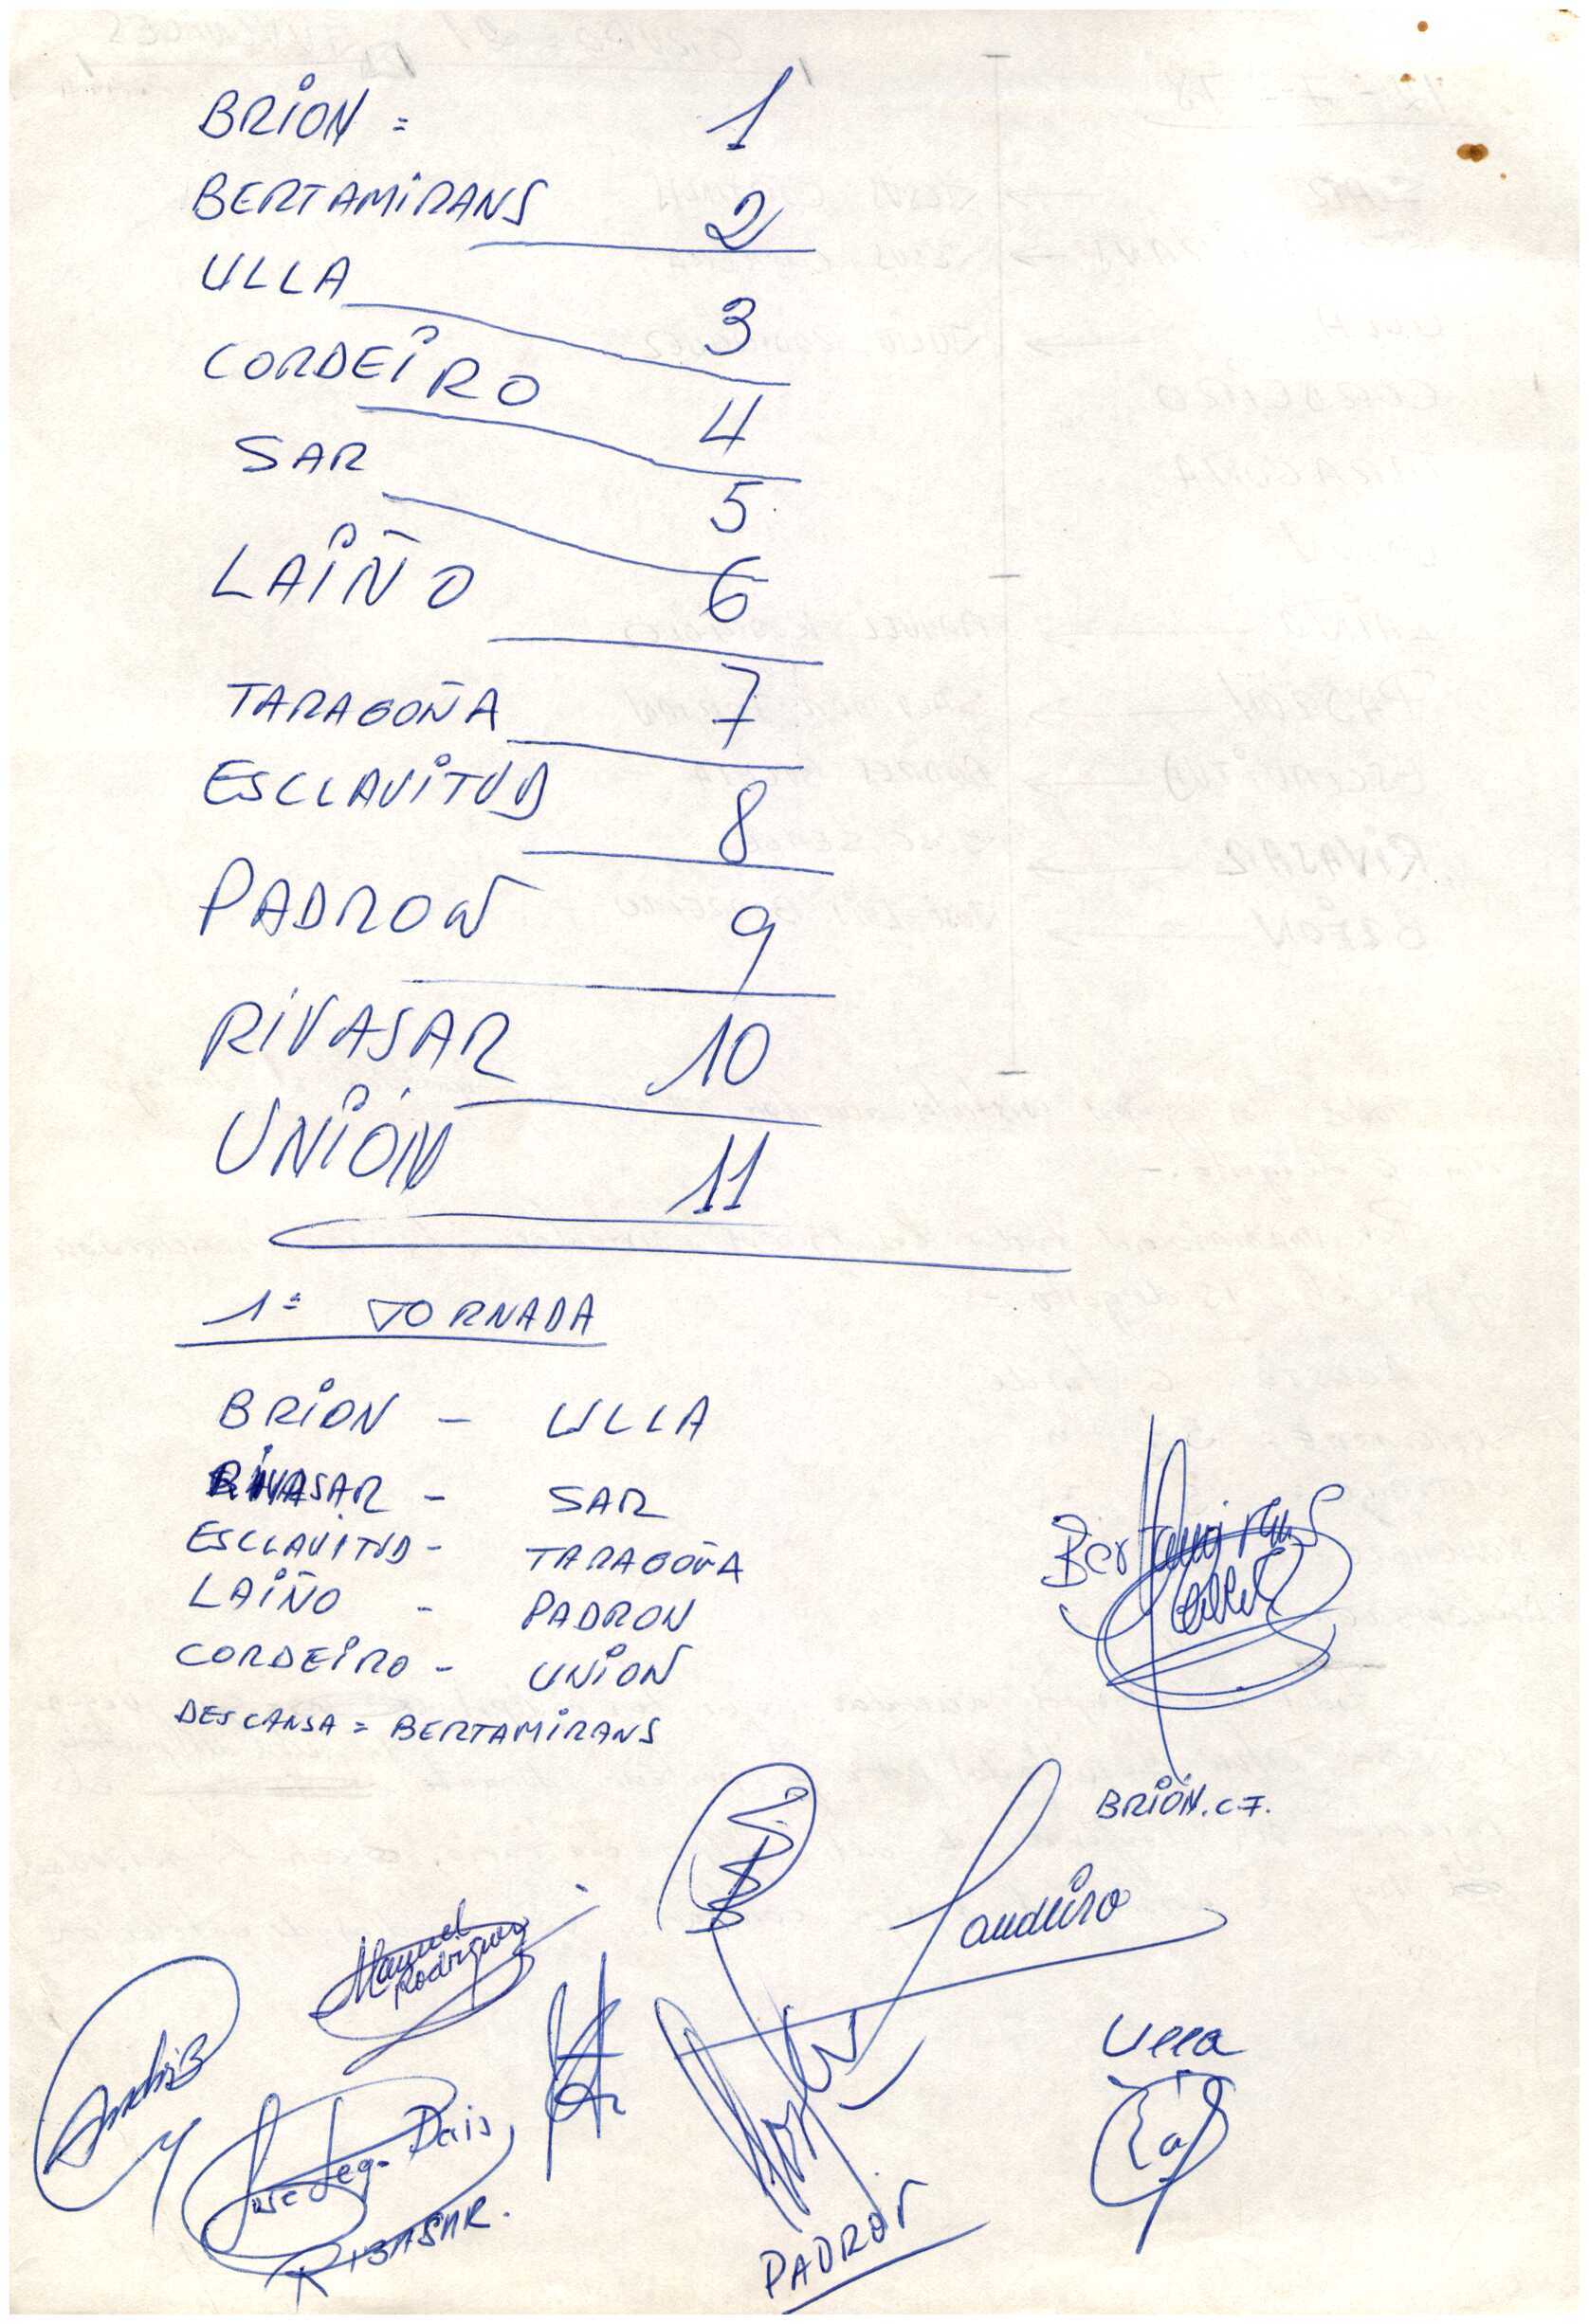 BRION = 1
BERTAMIRANS 2
ULLA 3
CORDEIRO 4
SAR 5
LAIÑO 6
TARAGOÑA 7
ESCLAVITUD 8
PADRON 9
RIVASAR 10
UNIÓN 11
1ª JORNADA
BRION - ULLA
RIVASAR - SAR
ESCLAVITUD - TARAGOÑA
LAIÑO - PADRON
CORDEIRO - UNION
DESCANSA = BERTAMIRANS
Bertamirans
BRIÓN. C.F.
Manuel
Rodriguez
Ulla
Jose Seg. Pais
RIBASAR.
PADRON